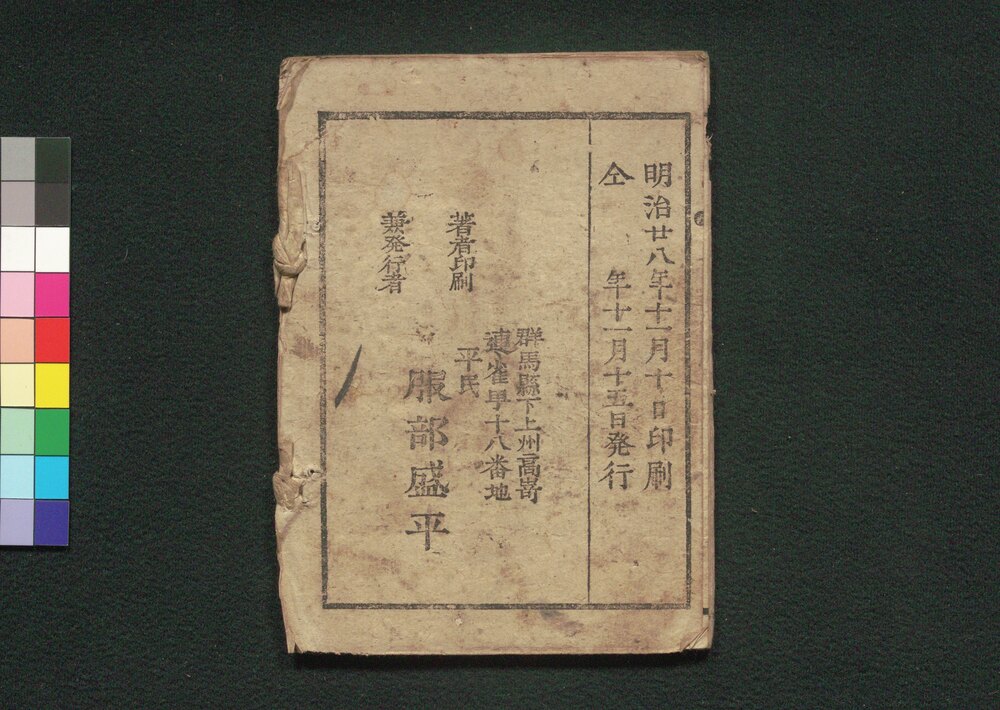 明治廿八年十一月十日印刷
仝年十一月十五日発行
群馬縣下上州高嵜
連雀甼十八番地
平民
著者印刷
兼発行者
服部盛平